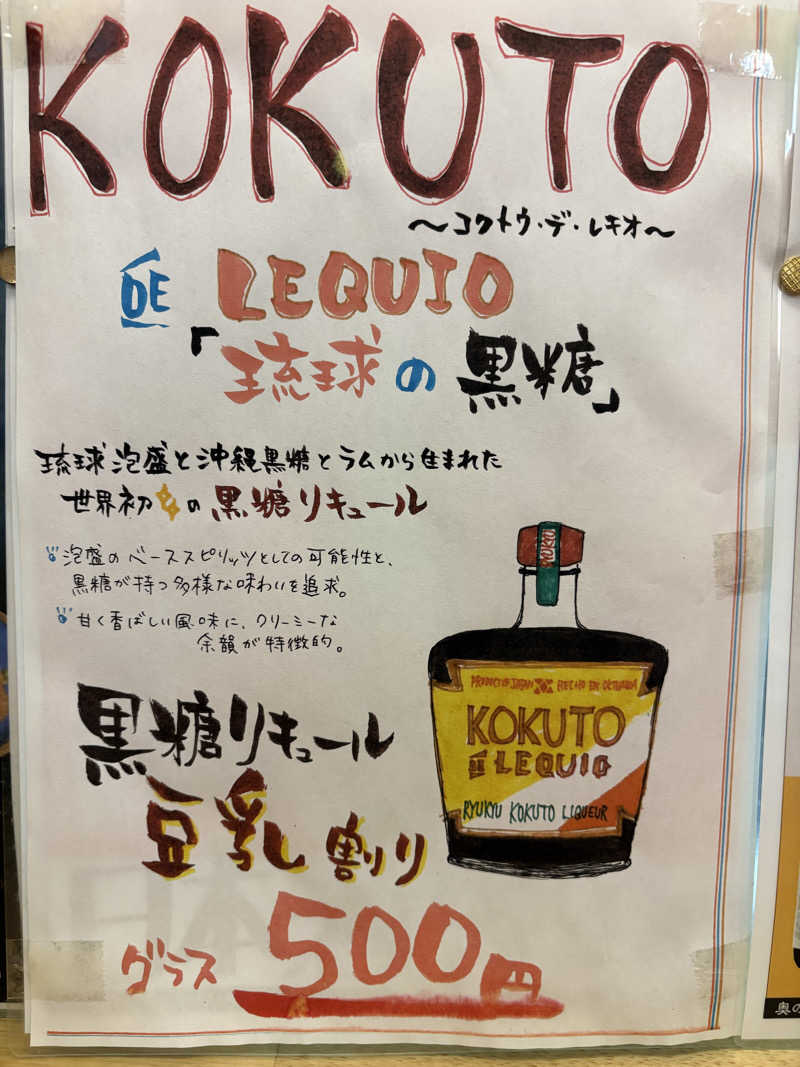 KOKUTO
～コクトウ・デ・レキオ～
DE LEQUIO
「琉球の黒糖」
琉球泡盛と沖縄黒糖とラムから生まれた
世界初の黒糖リキュール
泡盛のベーススピリッツとしての可能性と、
黒糖が持つ多様な味わいを追求。
甘く香ばしい風味に、クリーミーな
余韻が特徴的。
KOKUTO
PRODUCT OF JAPAN HECHO EN OKINAWA
KOKUTO
DE LEQUIO
RYUKYU KOKUTO LIQUEUR
黒糖リキュール
豆乳割り
グラス 500円
奥の